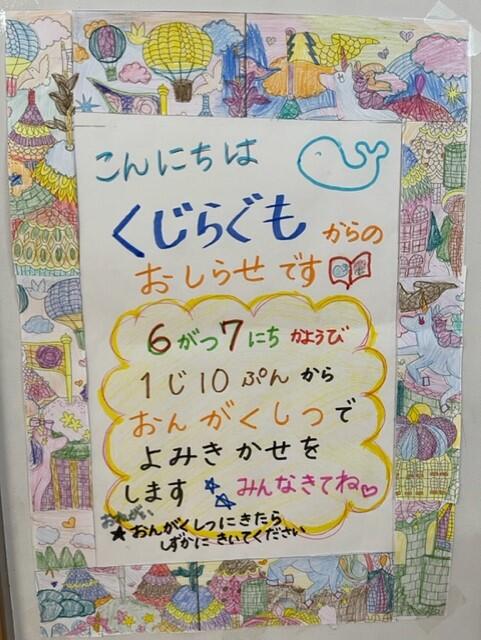 こんにちは
くじらぐも からの
おしらせです
6がつ7にち かようび
1じ10ぷんから
おんがくしつで
よみきかせを
します みんなきてね♡
おねがい
★おんがくしつにきたら
しずかに きいてください